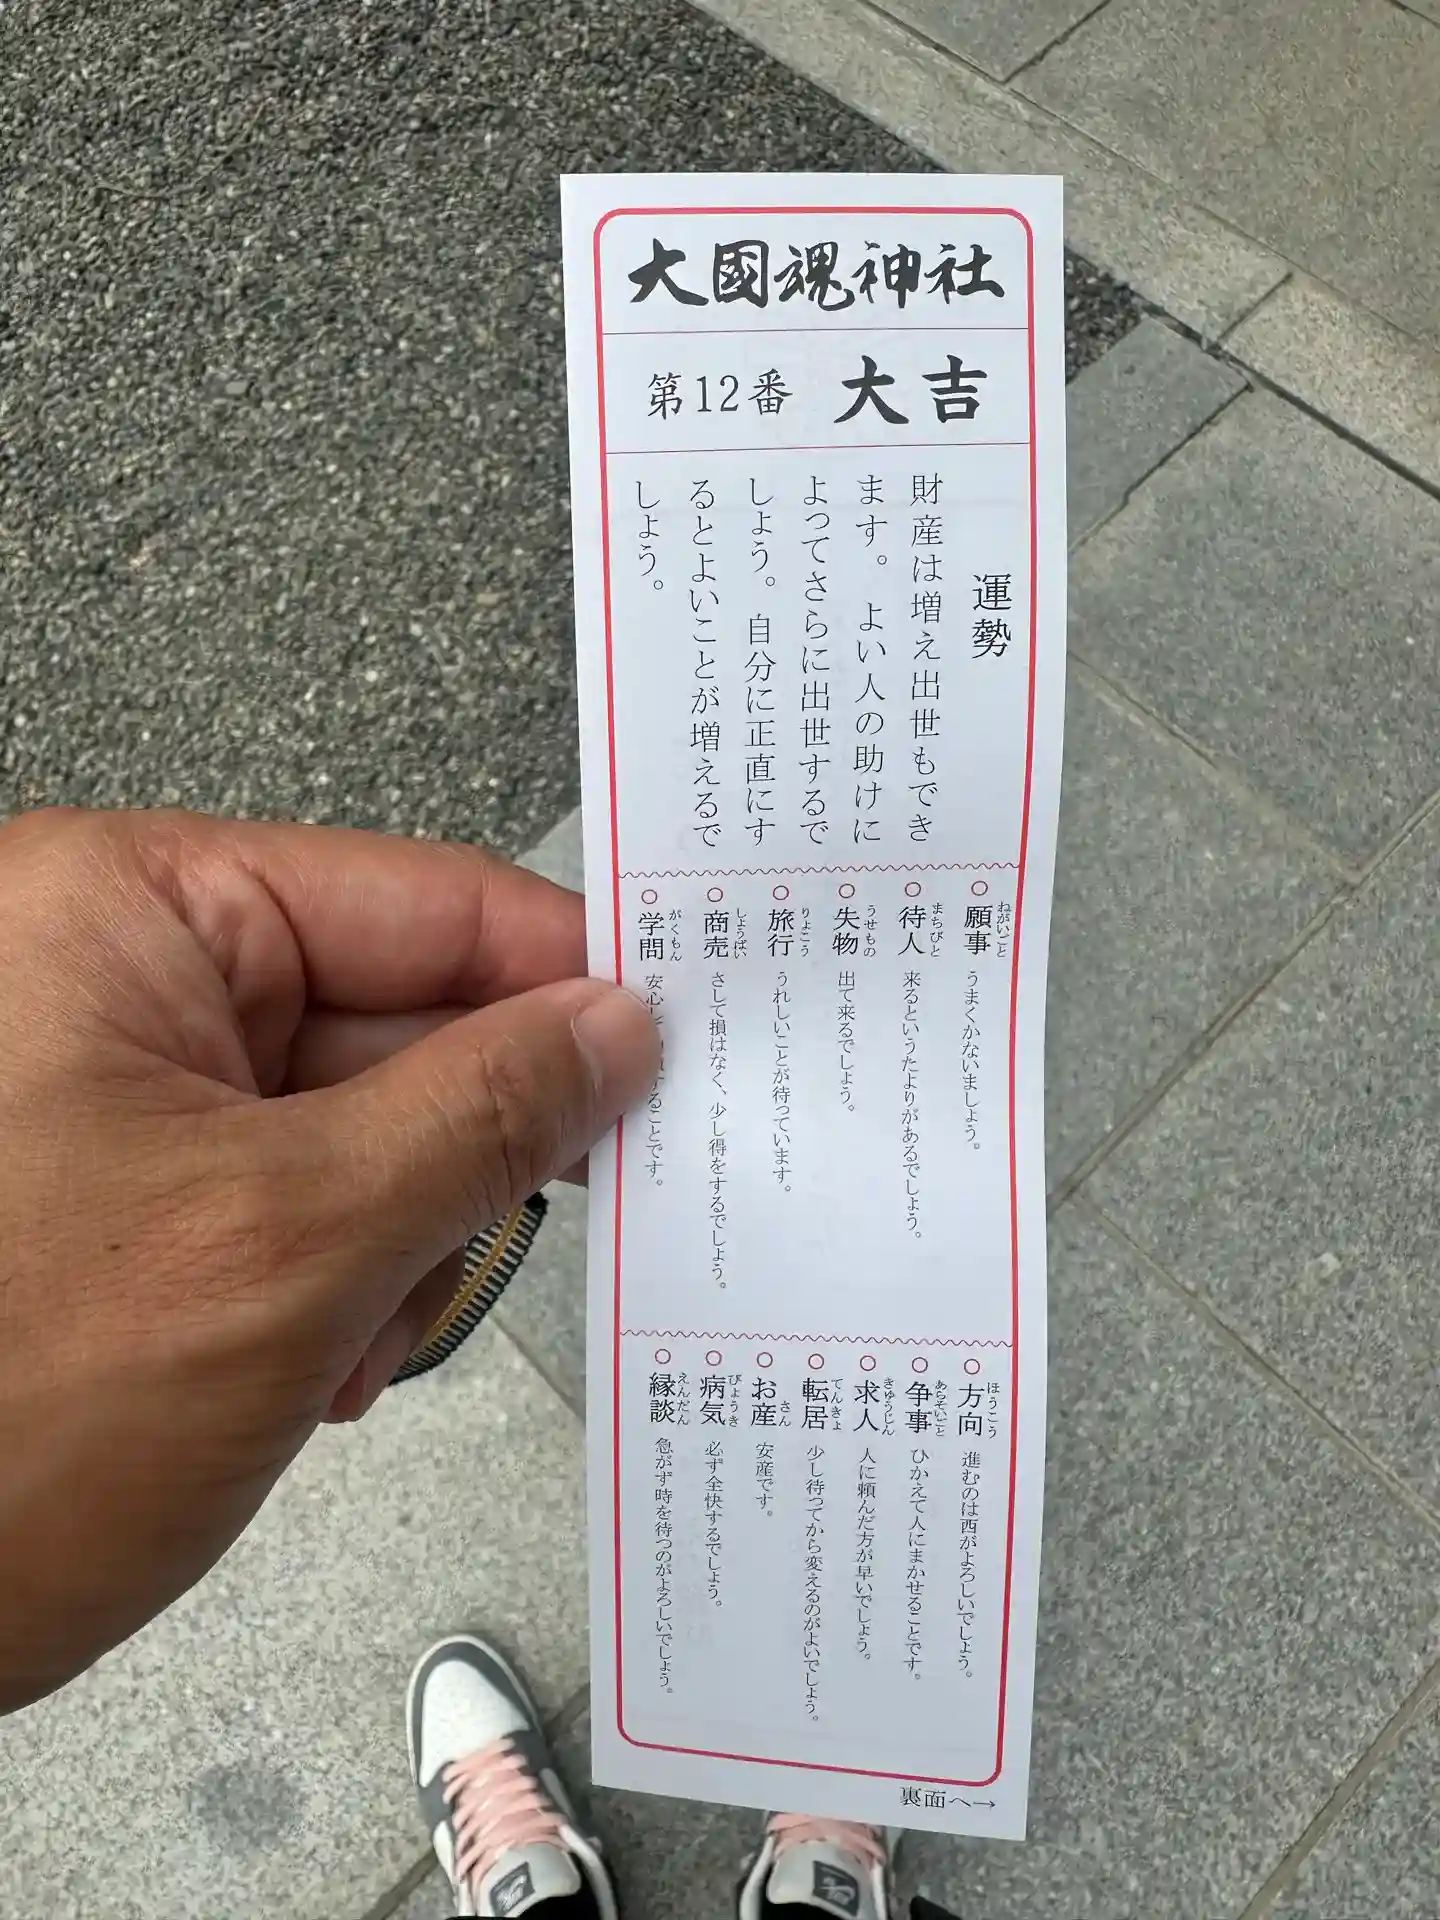 大國魂神社
第12番 大吉
運勢
財産は増え出世もでき
ます。よい人の助けに
よってさらに出世するで
しょう。自分に正直にす
るとよいことが増えるで
しょう。
○願事 ねがいごと うまくかないましょう。
○待人 まちびと 来るというたよりがあるでしょう。
○失物 うせもの 出て来るでしょう。
○旅行 りょこう うれしいことが待っています。
○商売 しょうばい さして損はなく、少し得をするでしょう。
○学問 がくもん 安心し することです。
○方向 ほうこう 進むのは西がよろしいでしょう。
○争事 あらそいごと ひかえて人にまかせることです。
○求人 きゅうじん 人に頼んだ方が早いでしょう。
○転居 てんきょ 少し待ってから変えるのがよいでしょう。
○お産 さん 安産です。
○病気 びょうき 必ず全快するでしょう。
○縁談 えんだん 急がず時を待つのがよろしいでしょう。
裏面へ→